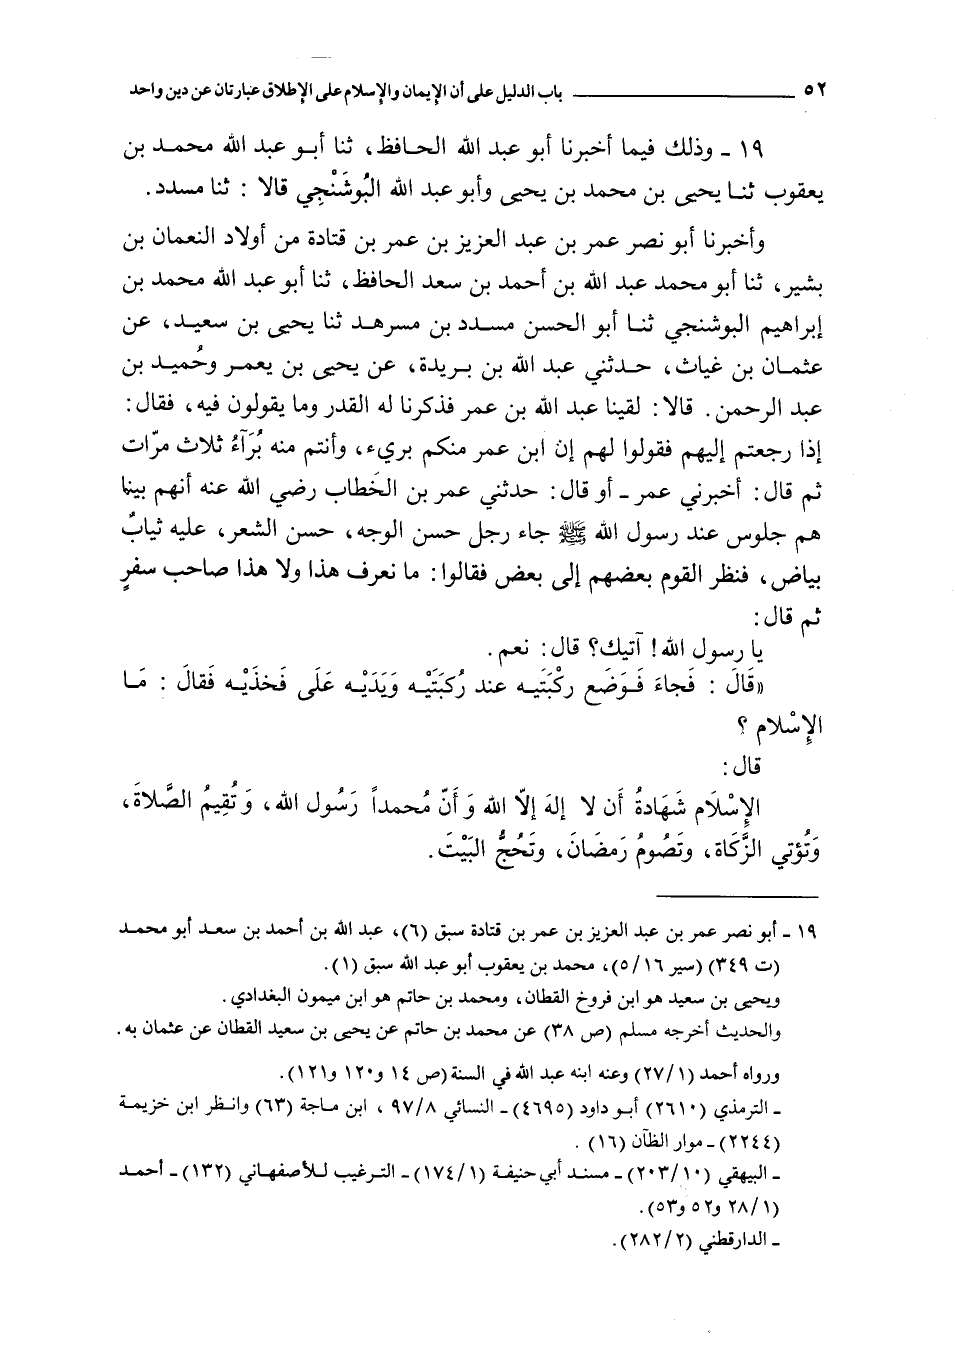 ٥٢ ــــــ باب الدليل على أن الإيمان والإسلام على الإطلاق عبارتان عن دين واحد
١٩ ـ وذلك فيما أخبرنا أبو عبد الله الحافظ، ثنا أبو عبد الله محمد بن
يعقوب ثنا يحيى بن محمد بن يحيى وأبو عبد الله البُوشَنْجِي قالا : ثنا مسدد.
وأخبرنا أبو نصر عمر بن عبد العزيز بن عمر بن قتادة من أولاد النعمان بن
بشير، ثنا أبو محمد عبد الله بن أحمد بن سعد الحافظ، ثنا أبو عبد الله محمد بن
إبراهيم البوشنجي ثنا أبو الحسن مسدد بن مسرهد ثنا يحيى بن سعيد، عن
عثمان بن غياث، حدثني عبد الله بن بريدة، عن يحيى بن يعمر وحُميد بن
عبد الرحمن. قالا: لقينا عبد الله بن عمر فذكرنا له القدر وما يقولون فيه، فقال:
إذا رجعتم إليهم فقولوا لهم إن ابن عمر منكم بريء، وأنتم منه بُرَآءُ ثلاث مرّات
ثم قال: أخبرني عمر ـ أو قال: حدثني عمر بن الخطاب رضي الله عنه أنهم بينما
هم جلوس عند رسول الله ﷺ جاء رجل حسن الوجه، حسن الشعر، عليه ثيابُ
بياض، فنظر القوم بعضهم إلى بعض فقالوا: ما نعرف هذا ولا هذا صاحب سفرٍ
ثم قال:
يا رسول الله! آتيك؟ قال: نعم.
«قَالَ : فَجاءَ فَوَضَع ركْبَتَيه عند رُكبَتَيْه وَيَدَيْه عَلَى فَخذَيْه فَقالَ : مَا
الإِسْلام ؟
قال:
الإِسْلَام شَهَادةُ أَن لا إلهَ إلاّ الله وَ أَنّ مُحمداً رَسُول الله، وَتُقِيمُ الصَّلاةَ،
وَتُؤتي الزَّكَاة، وتَصُومُ رَمضَانَ، وتَحُجُّ البَيْتَ.
١٩ ـ أبو نصر عمر بن عبد العزيز بن عمر بن قتادة سبق (٦)، عبد الله بن أحمد بن سعد أبو محمد
(ت ٣٤٩) (سير ٥/١٦)، محمد بن يعقوب أبو عبد الله سبق (١).
ويحيى بن سعيد هو ابن فروخ القطان، ومحمد بن حاتم هو ابن ميمون البغدادي.
والحديث أخرجه مسلم (ص ٣٨) عن محمد بن حاتم عن يحيى بن سعيد القطان عن عثمان به.
ورواه أحمد (٢٧/١) وعنه ابنه عبد الله في السنة (ص ١٤ و١٢٠ و١٢١).
ـ الترمذي (٢٦١٠) أبو داود (٤٦٩٥) ـ النسائي ٩٧/٨ ، ابن ماجة (٦٣) وانظر ابن خزيمة
(٢٢٤٤) ـ موار الظآن (١٦) .
ـ البيهقي (٢٠٣/١٠) ـ مسند أبي حنيفة (١٧٤/١) ـ الترغيب للأصفهاني (١٣٢) ـ أحمد
(٢٨/١ و٥٢ و٥٣).
ـ الدارقطني (٢٨٢/٢).